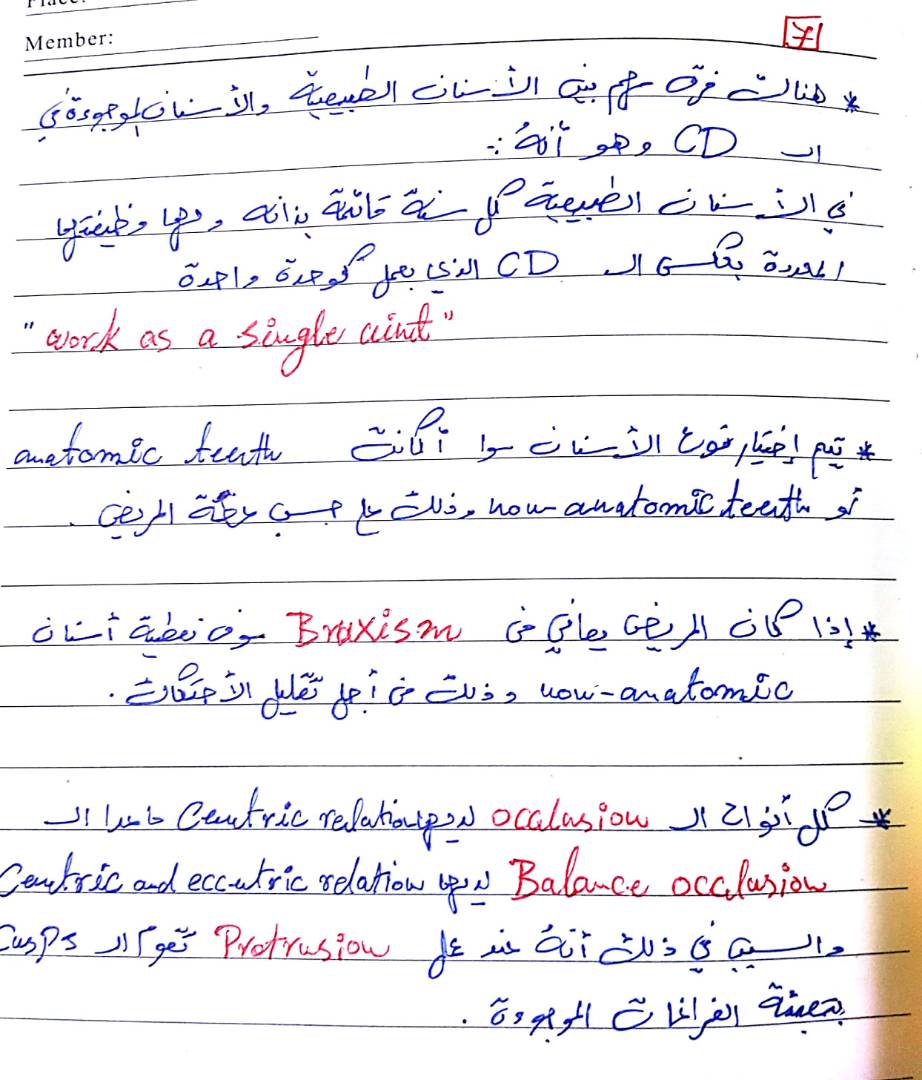 Member:
7
* هنالك فرق مهم بين الأسنان الطبيعية والأسنان الموجودة في
الـ CD وهو أنهُ :-
في الأسنان الطبيعية كل سنة قائمة بذاته ولها وظيفتها
المحددة بعكس الـ CD الذي يعمل كوحدة واحدة
"work as a single uint"
* يتم إختيار نوع الأسنان سوا أكانت anatomic teeth
أو non-anatomic teeth وذلك على حسب عظمة المريض .
* إذا كان المريض يعاني من Bruxism سوف نعطية أسنان
non-anatomic وذلك من أجل تقليل الأحتكاك .
* كل أنواع الـ occlusion لديها Centric relation ماعدا الـ
Balance occlusion لديها Centric and eccentric relation
والسبب في ذلك أنهُ عند عمل Protrusion تقوم الـ Cusps
بتعبئة الفراغات الموجودة .